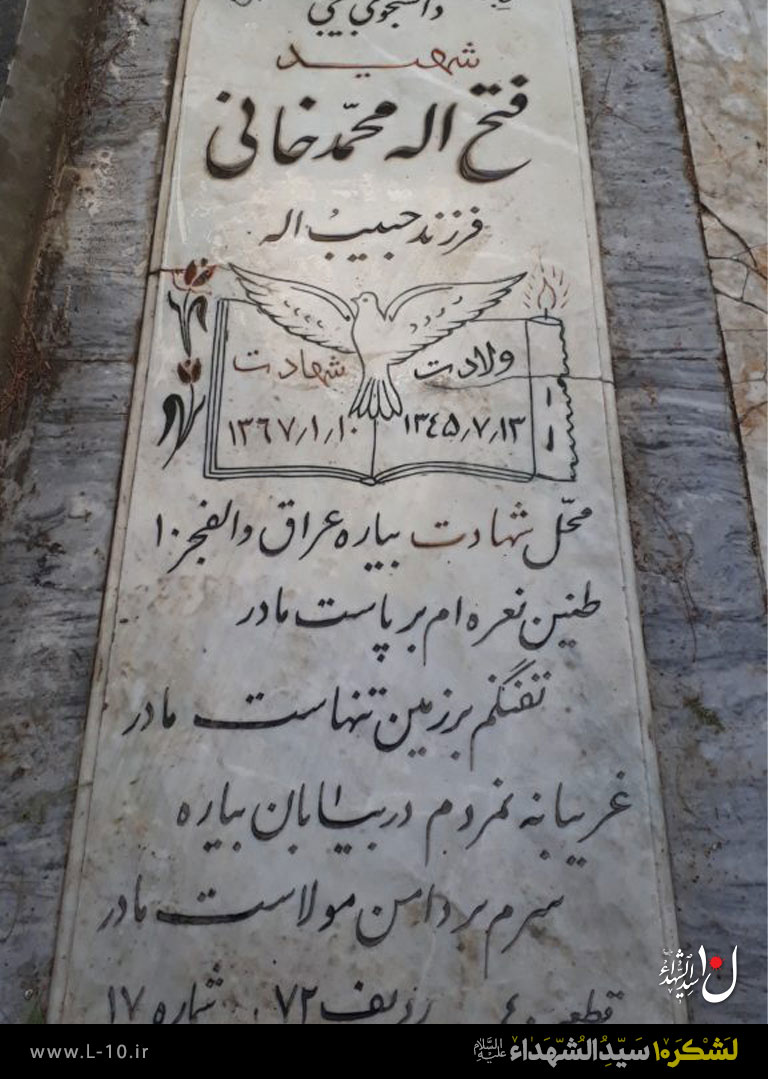 دانشجوی
شهید
فتح اله محمّدخانی
فرزند حبیب اله
ولادت شهادت
۱۳۴۵٫۷٫۱۳ ۱۳۶۷٫۱٫۱۰
محلّ شهادت بیاره عراق والفجر ۱۰
طنین نعره ام برپاست مادر
تفنگم برزمین تنهاست مادر
غریبانه نمردم در بیابان بیاره
سرم بر دامن مولاست مادر
قطعه ۴۰ ردیف ۷۲ شماره ۱۷
ل۱۰ سیدالشهداء
لَشکَر۱۰سَیِّدُالشُّهَداء عَلَیهِ السَّلام
www.L-10.ir